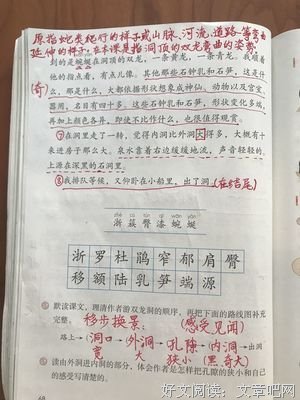 原指蛇类爬行的样子或山脉、河流、道路等弯曲
延伸的样子,在本课是指洞顶的双龙弯曲的姿势
刻的是蜿蜒在洞顶的双龙,一条黄龙,一条青龙。我顺着
他的指点看,有点儿像。其他那些石钟乳和石笋,这是什
(奇)么,那是什么,大都依据形状想象成神仙、动物以及宫室、
器用,名目有四十多。这些石钟乳和石笋,形状变化多端,
再加上颜色各异,即使不比作什么,也很值得观赏。
⑦在洞里走了一转,觉得内洞比外洞大得多,大概有十
来进房子那么大。泉水靠着右边缓缓地流,声音轻轻的。
上源在深黑的石洞里。
⑧我排队等候,又仰卧在小船里,出了洞。(在结尾)
zhè cù tún qī wān yán
浙 簇 臀 漆 蜿 蜒
浙 罗 杜 鹃 窄 郁 肩 臀
移 额 陆 乳 笋 端 源
默读课文,理清作者游双龙洞的顺序,再把下面的路线图补充
完整。 移步换景: (感受见闻)
路上→(洞口)→外洞→孔隙→(内洞)→出洞
宽 大 狭小 (黑、奇、大)
读由外洞进内洞的部分,体会作者是怎样把孔隙的狭小和自己
的感受写清楚的。
68
好文阅读:文章吧网